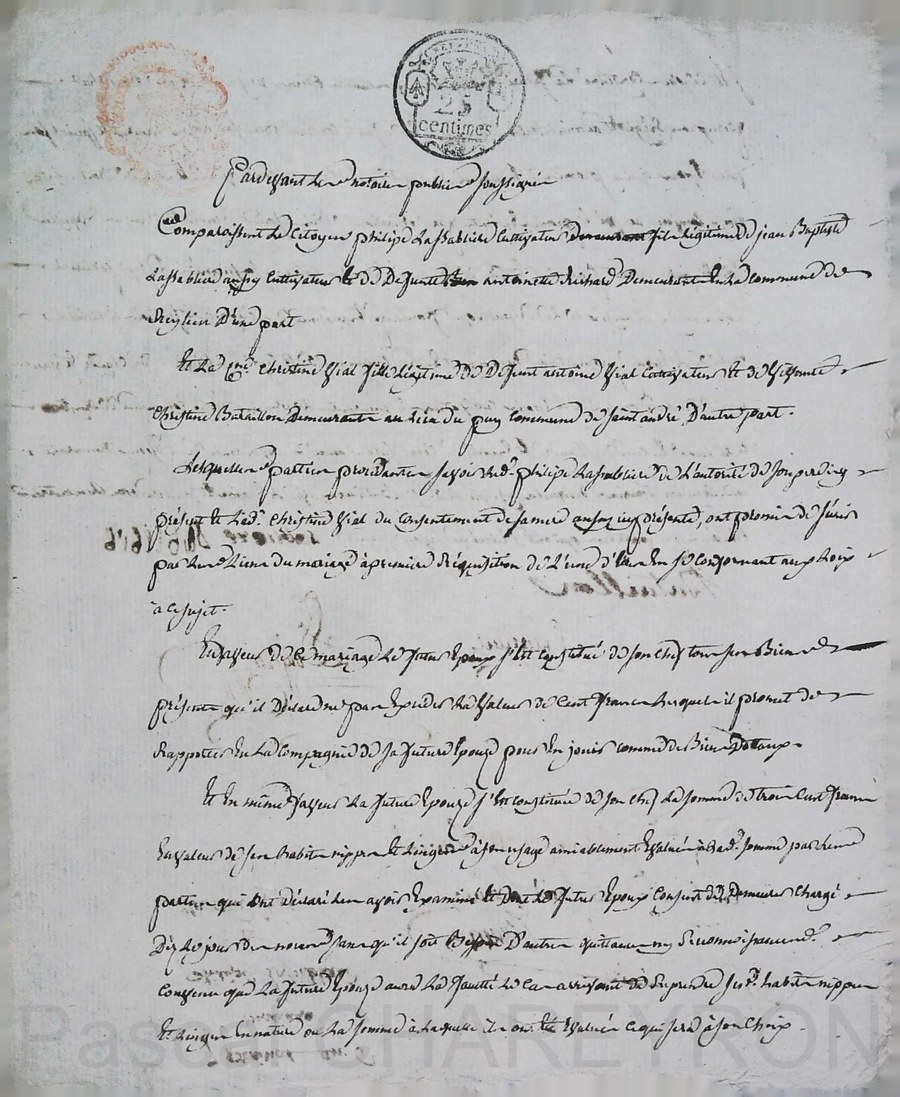 25
centimes
Pardevant le notaire public soussigné
Comparaissent le Citoyen philipe Lassabliere Cultivateur fils légitime de jean Baptiste
Lassabliere aussy Cultivateur et de Defunte antoinette Richard Demeurant En la commune de
D'une part
Et la Cne christine Vial fille légitime de Defunt antoine Vial Cultivateur et de Vivante
Christine Bataillon Demeurante au lieu du puy commune de saint andré D'autre part.
Lesquelles parties procedantes savoir led. philipe Lassabliere de L'autorité de son pere icy
présent et lad. Christine Vial du Consentement de sa mere aussy icy présente, ont promis de s'unir
par les liens du mariage à premiere Réquisition de L'une d'elles En se conformant aux Loix
à ce sujet.
En faveur de ce mariage Le futur Epoux s'est constitué de son chef tous ses Biens
présents qu'il Déclare ne pas Exceder La Valeur de Cent francs Lesquels il promet de
Rapporter En La Compagnie de sa future Epouze pour En jouir comme de Biens Dotaux.
Et En même faveur La future Epouze s'est constituée de son chef La somme de trois Cent francs
En valeur de ses habits nippes et Linges à son usage amiablement Evalués à lad. somme par les
parties qui ont Déclaré les avoir Examinés Et Dont le futur Epoux Consent de Demeurer Chargé
Dez le jour des noces sans qu'il soit Besoin D'autre quittance ny Reconnoissance.
Convenu que La future Epouze aura La faculté le cas arrivant de Reprendre sesd. habits nippes
Et Linges En nature ou La somme à Laquelle ils ont été Evalués ce qui sera à son Choix.
Pascal CHAREYRON